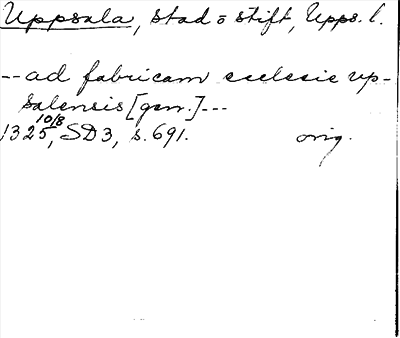 Uppsala, stad o stift, Upps. l.
-- ad fabricam ecclesie up-
salensis [gen.] ---
1325 10/8, SD3, s. 691. orig.